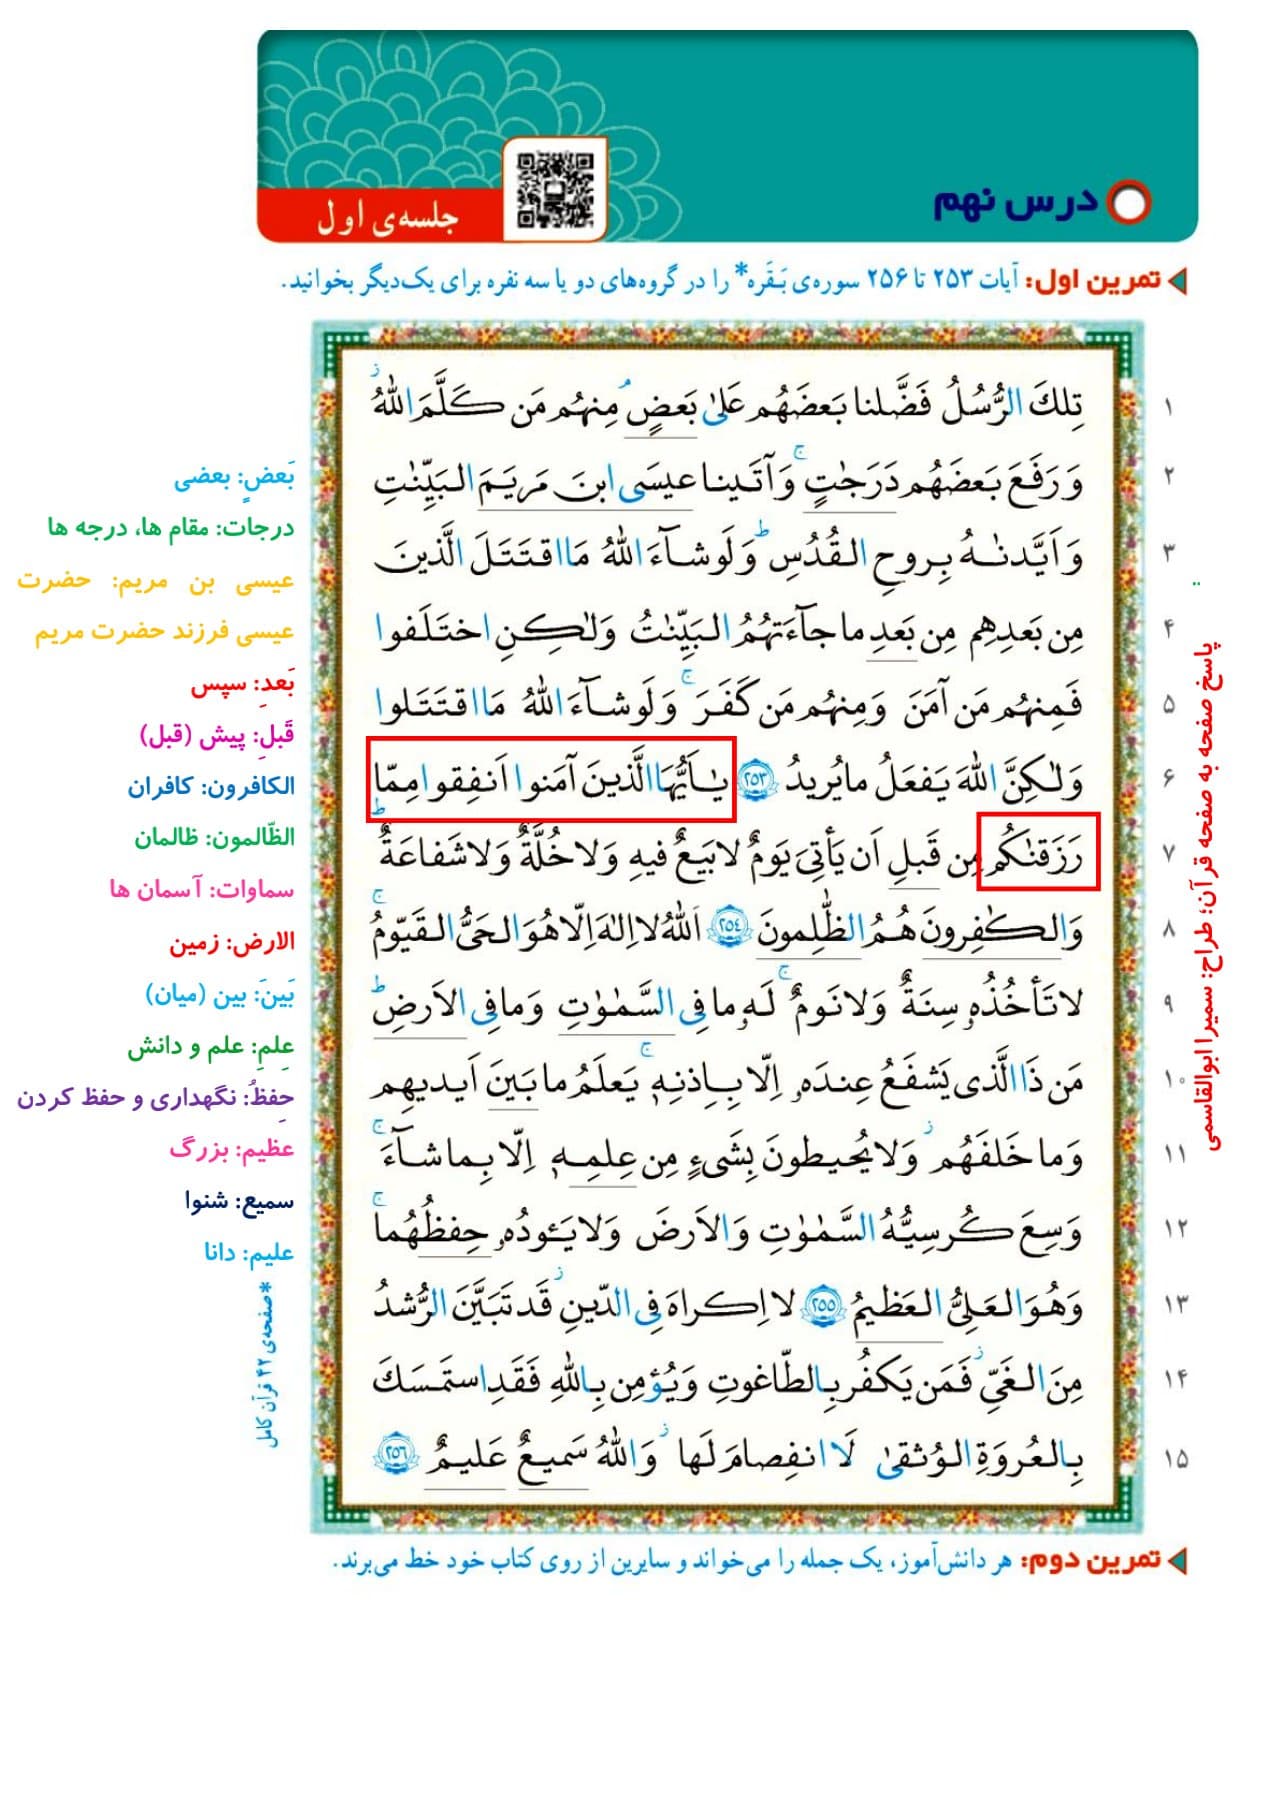 درس نهم
جلسه‌ی اول
تمرین اول: آیات ۲۵۳ تا ۲۵۶ سوره‌ی بَقَره* را در گروه‌های دو یا سه نفره برای یک‌دیگر بخوانید.
۱ تِلكَ الرُّسُلُ فَضَّلنا بَعضَهُم عَلىٰ بَعضٍ ۘ مِنهُم مَن كَلَّمَ اللهُ ز
۲ وَ رَفَعَ بَعضَهُم دَرَجٰتٍ ۚ وَ آتَينا عيسَى ابنَ مَريَمَ البَيِّنٰتِ
۳ وَ اَيَّدنٰهُ بِروحِ القُدُسِ ط وَ لَو شآءَ اللهُ مَا اقتَتَلَ الَّذينَ
۴ مِن بَعدِهِم مِن بَعدِ ما جآءَتهُمُ البَيِّنٰتُ وَ لٰكِنِ اختَلَفوا
۵ فَمِنهُم مَن آمَنَ وَ مِنهُم مَن كَفَرَ ۚ وَ لَو شآءَ اللهُ مَا اقتَتَلوا
۶ وَ لٰكِنَّ اللهَ يَفعَلُ ما يُريدُ ﴿۲۵۳﴾ يٰٓاَيُّهَا الَّذينَ آمَنوا اَنفِقوا مِمّا
۷ رَزَقنٰكُم مِن قَبلِ اَن يَأتِىَ يَومٌ لا بَيعٌ فيهِ وَ لا خُلَّةٌ وَ لا شَفاعَةٌ ط
۸ وَ الكٰفِرونَ هُمُ الظّٰلِمونَ ﴿۲۵۴﴾ اَللهُ لا اِلٰهَ اِلّا هُوَ الحَىُّ القَيّومُ ۚ
۹ لا تَأخُذُهٗ سِنَةٌ وَ لا نَومٌ ۚ لَهٗ ما فِى السَّمٰوٰتِ وَ ما فِى الاَرضِ ط
۱۰ مَن ذَا الَّذى يَشفَعُ عِندَهٗ اِلّا بِاِذنِهٖ ۚ يَعلَمُ ما بَينَ اَيديهِم
۱۱ وَ ما خَلفَهُم ز وَ لا يُحيطونَ بِشَىءٍ مِن عِلمِهٖ اِلّا بِما شآءَ ۚ
۱۲ وَسِعَ كُرسِيُّهُ السَّمٰوٰتِ وَ الاَرضَ وَ لا يَـٔودُهٗ حِفظُهُما ۚ
۱۳ وَ هُوَ العَلِىُّ العَظيمُ ﴿۲۵۵﴾ لا اِكراهَ فِى الدّينِ ز قَد تَبَيَّنَ الرُّشدُ
۱۴ مِنَ الغَىِّ ز فَمَن يَكفُر بِالطّاغوتِ وَ يُؤمِن بِاللهِ فَقَدِ استَمسَكَ
۱۵ بِالعُروَةِ الوُثقىٰ لَا انفِصامَ لَها ز وَ اللهُ سَميعٌ عَليمٌ ﴿۲۵۶﴾
تمرین دوم: هر دانش‌آموز، یک جمله را می‌خواند و سایرین از روی کتاب خود خط می‌برند.
بَعضٍ: بعضی
درجات: مقام ها، درجه ها
عیسی بن مریم: حضرت
عیسی فرزند حضرت مریم
بَعدِ: سپس
قَبلِ: پیش (قبل)
الکافرون: کافران
الظّالمون: ظالمان
سماوات: آسمان ها
الارض: زمین
بَینَ: بین (میان)
عِلمِ: علم و دانش
حِفظُ: نگهداری و حفظ کردن
عظیم: بزرگ
سمیع: شنوا
علیم: دانا
*صفحه‌ی ۴۲ قرآن کامل
پاسخ صفحه به صفحه قرآن؛ طراح: سمیرا ابوالقاسمی